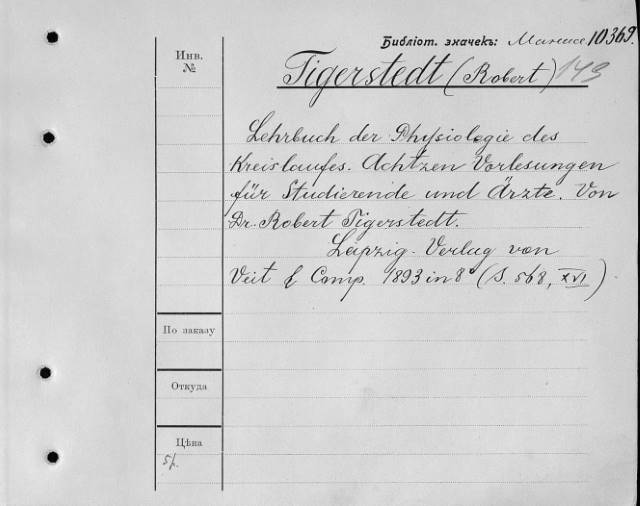 Библіот. значекъ: 10369.
Инв.
№
Tigerstedt (Robert) 143
Lehrbuch der Physiologie des
Kreislaufes. Achtzen Vorlesungen
für Studierende und Ärzte. Von
Dr. Robert Tigerstedt.
Leipzig. Verlag von
Veit & Comp. 1893 in 8° (S. 568, XVI)
По заказу
Откуда
Цѣна
5р.